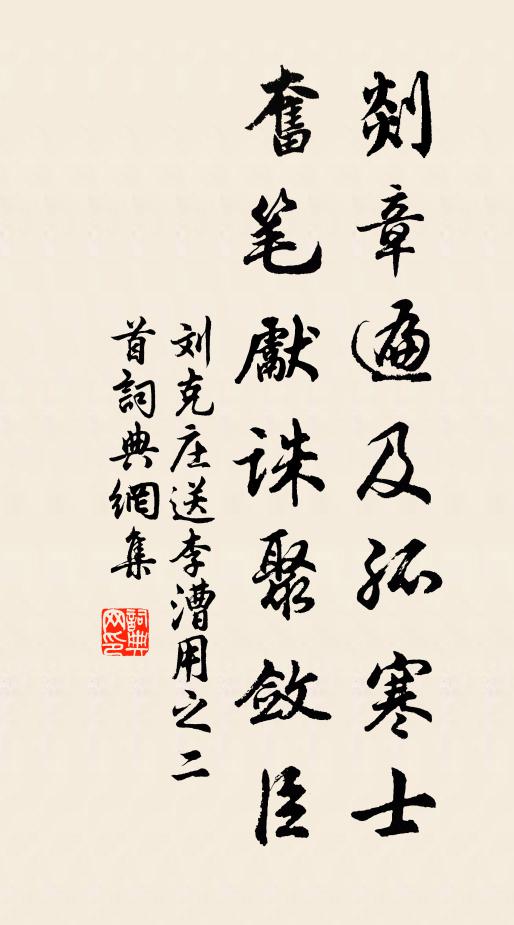 剡章遍及孤寒士
奮笔獻誅聚斂臣
刘克庄送李漕用之二
首詞典網集
詞典网印